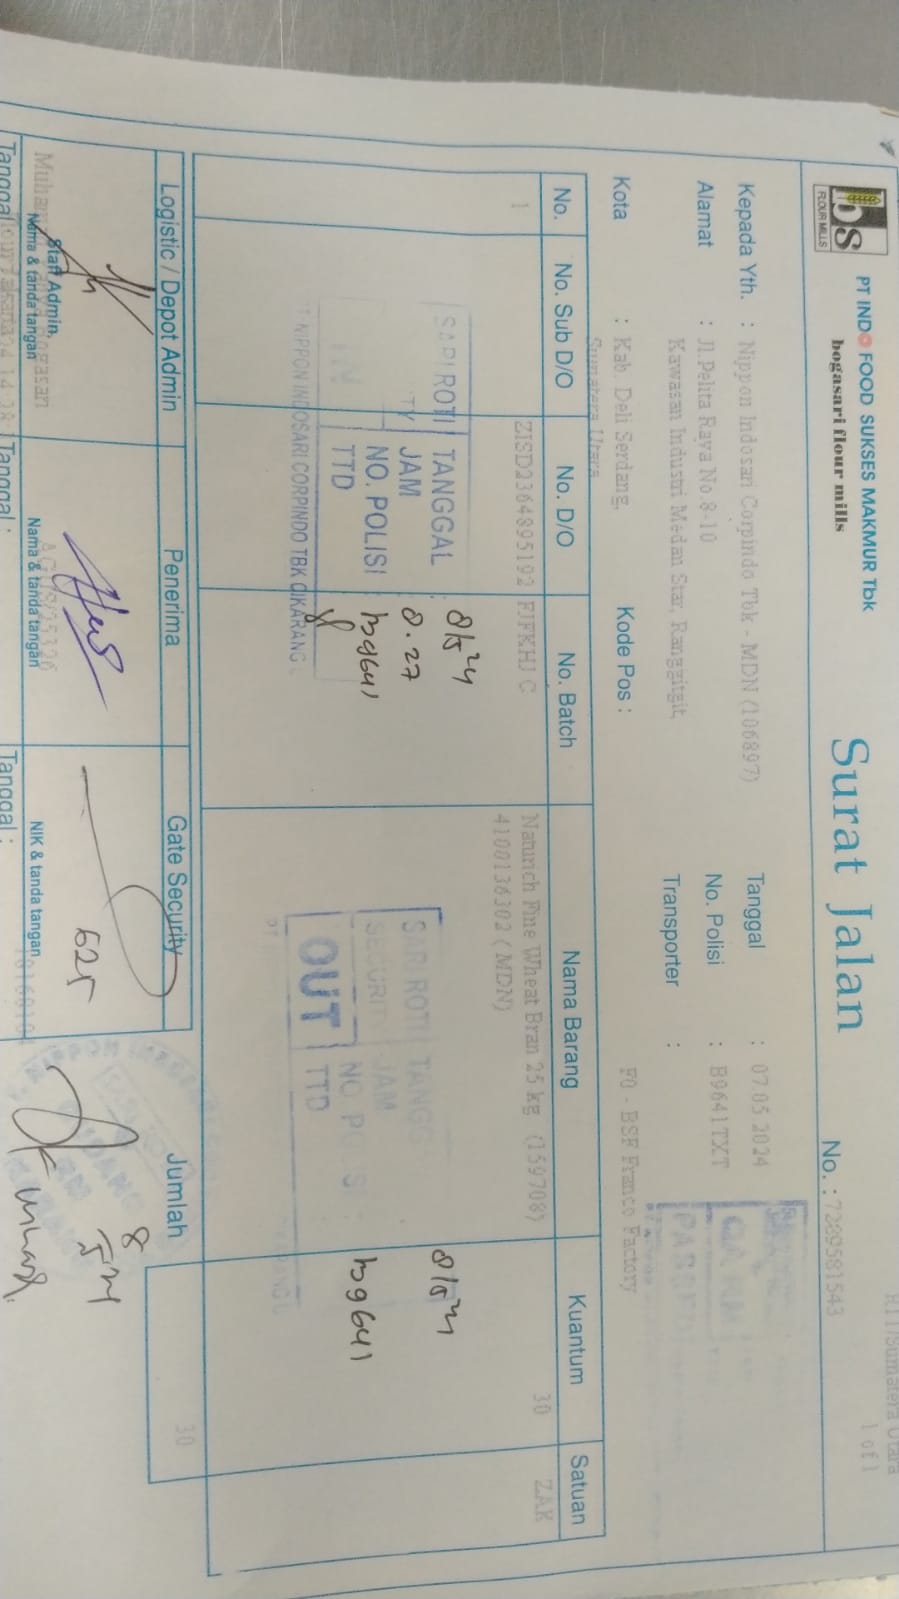 R11/Sumatera Utara
1 of 1
bs
FLOUR MILLS
PT INDOFOOD SUKSES MAKMUR Tbk
bogasari flour mills
Surat Jalan
No. : 7289581543
Kepada Yth. : Nippon Indosari Corpindo Tbk - MDN (106897)
Alamat : Jl.Pelita Raya No.8-10
Kawasan Industri Medan Star,
Kota : Kab. Deli Serdang,
Sumatera Utara
Kode Pos :
Tanggal : 07.05.2024
No. Polisi : B9641TXT
Transporter : F0 - BSF Franco Factory
No. No. Sub D/O No. D/O No. Batch Nama Barang Kuantum Satuan
1 ZISD2364895192 FJFKHJ C Naturich Fine Wheat Bran 25 kg (159708) 30 ZAK
4100136302 (MDN)
SARI ROTI TANGGAL : 8/5 24
JAM : 8.27
NO. POLISI : B9641
IN TTD
PT NIPPON INDOSARI CORPINDO TBK CIKARANG
SARI ROTI TANGG 8/5 24
SECURIT JAM
NO. PO SI B9641
OUT TTD
Jumlah 30
Logistic / Depot Admin Penerima Gate Security
525
8
Staff Admin,
Nama & tanda tangan Nama & tanda tangan NIK & tanda tangan
Tanggal Tanggal : Tanggal :